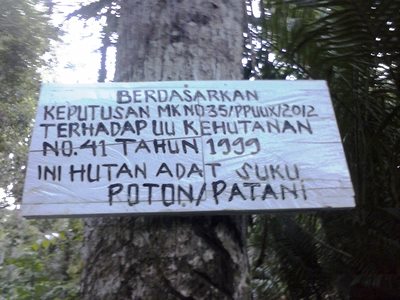 BERDASARKAN
KEPUTUSAN MK NO:35/PPUUX/2012
TERHADAP UU KEHUTANAN
NO.41 TAHUN 1999
INI HUTAN ADAT SUKU
POTON/PATANI